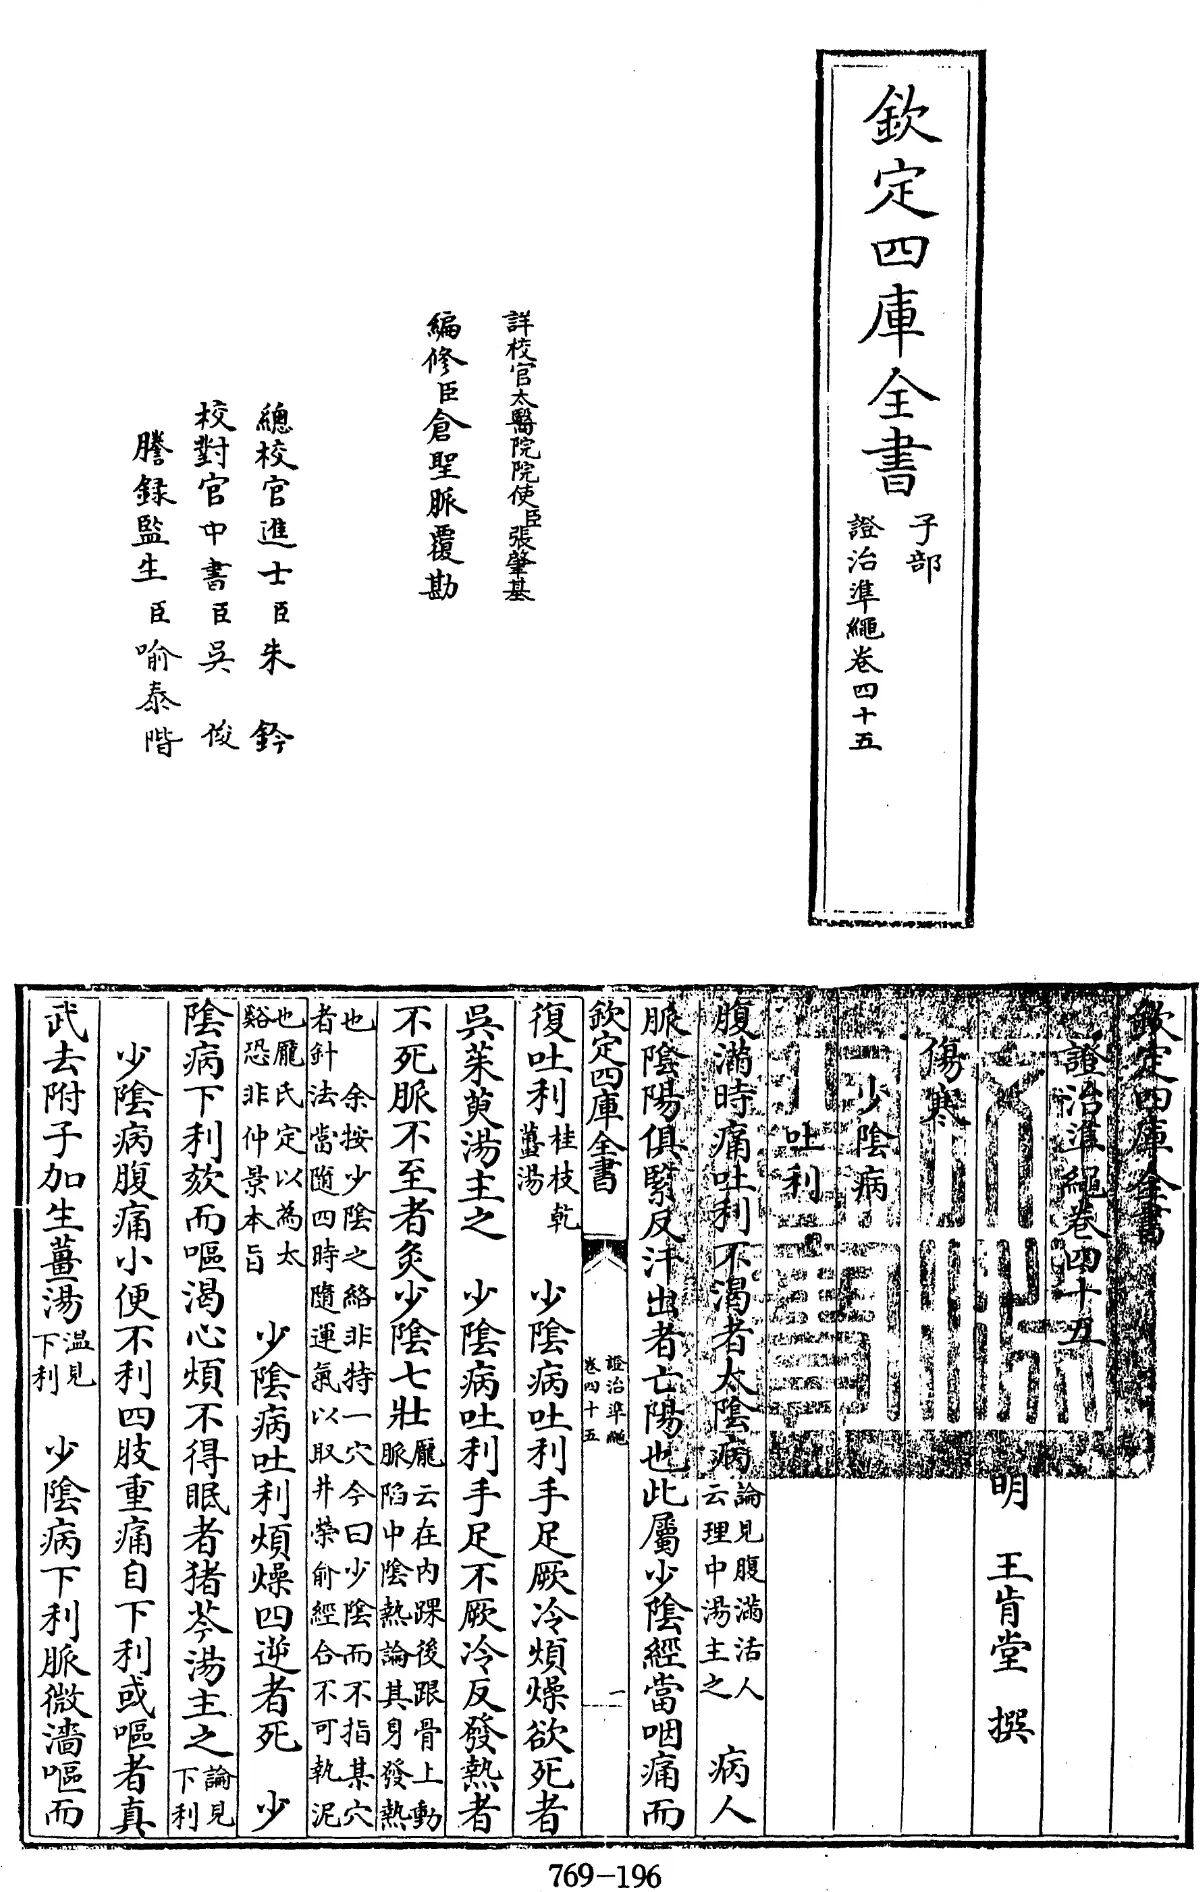 欽定四庫全書
子部
證治準繩卷四十五
詳校官太醫院院使臣張肇基
編修臣倉聖脈覆勘
總校官進士臣朱鈐
校對官中書臣吳俊
謄録監生臣喻泰階
欽定四庫全書
證治準繩卷四十五
明 王肯堂 撰
傷寒
少陰病
吐利
腹滿時痛吐利不渴者太陰病論見腹滿活人云理中湯主之 病人
脈陰陽俱緊反汗出者亡陽也此屬少陰經當咽痛而
復吐利桂枝乾薑湯 少陰病吐利手足厥冷煩燥欲死者
吳茱萸湯主之 少陰病吐利手足不厥冷反發熱者
不死脈不至者灸少陰七壯龎云在内踝後跟骨上動脈陷中陰熱論其身發熱
也 余按少陰之絡非特一穴今曰少陰而不指某穴者針法當隨四時隨運氣以取井榮俞經合不可執泥
也龎氏定以為太谿恐非仲景本旨 少陰病吐利煩燥四逆者死 少
陰病下利欬而嘔渴心煩不得眠者猪苓湯主之論見下利
少陰病腹痛小便不利四肢重痛自下利或嘔者真
武去附子加生薑湯温見下利 少陰病下利脈微濇嘔而
欽定四庫全書
證治準繩
卷四十五
一
769-196